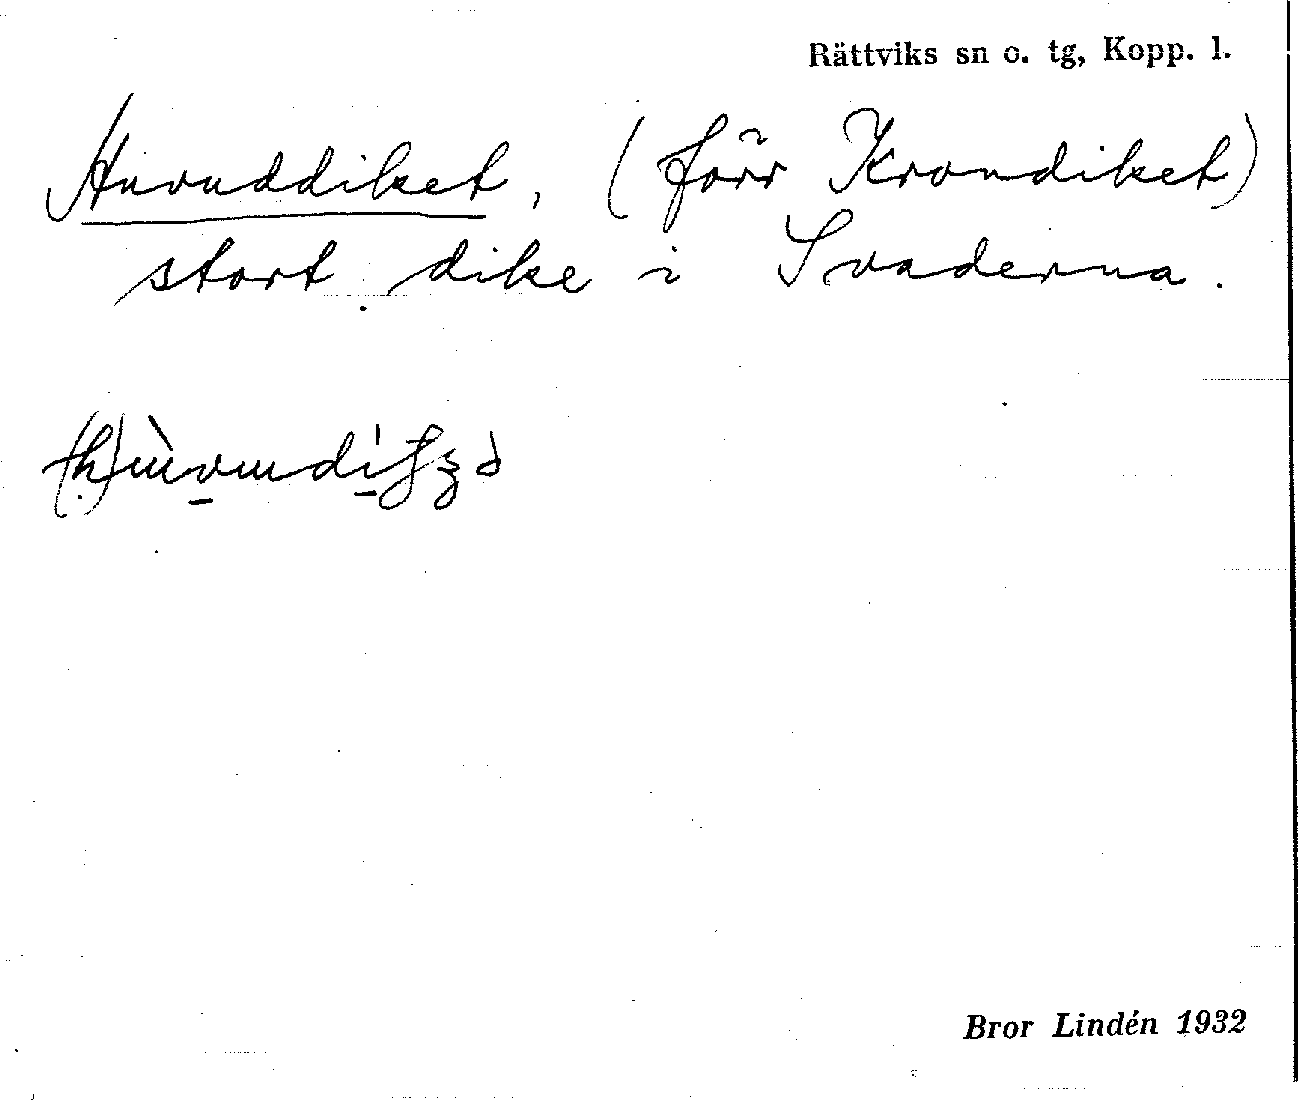 Rättviks sn o. tg, Kopp. l.
Huvuddiket, (förr Krondiket)
stort dike i Svaderna.
Bror Lindén 1932